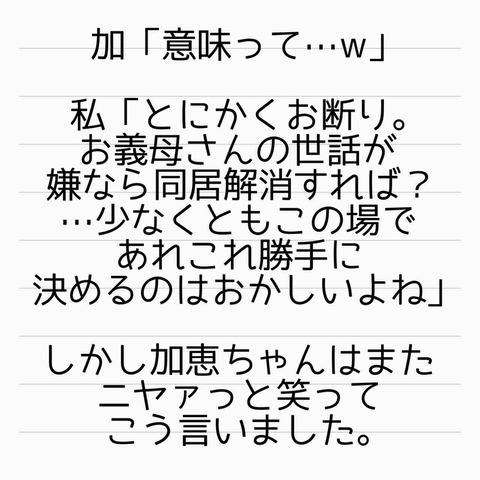 加「意味って…w」
私「とにかくお断り。
お義母さんの世話が
嫌なら同居解消すれば？
…少なくともこの場で
あれこれ勝手に
決めるのはおかしいよね」
しかし加恵ちゃんはまた
ニヤァっと笑って
こう言いました。